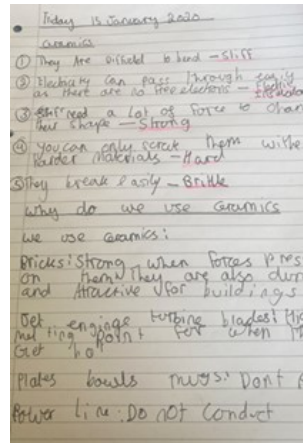 Today 15 January 2020
Ceramics
① They Are Difficld to bend – Stiff
② Electricity can pass through easily
as there are no free electons –
③ need a lot of force to chan
their shape – Strong
④ you can only scrach them withe
harder materials – Hard
⑤ They break easily – Brittle
why do we use ceramics
we use ceramics:
Bricks: Strong when forces pres
on them They are also dur
and Attractive for buildings
Jet enginge turbine blades: Hig
melting point for when
Get hot
Plates bowls mugs: Dont
Power line: Do not Conduct